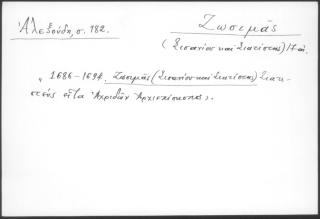 Ἀλεξούδη, σ. 182.
Ζωσιμᾶς
(Σισανίου καὶ Σιατίστης) 17 αἰ.
"1686-1694. Ζωσιμᾶς (Σισανίου καὶ Σιατίστης) Σιατι-
στεύς εἶτα Ἀχριδῶν Ἀρχιεπίσκοπος).